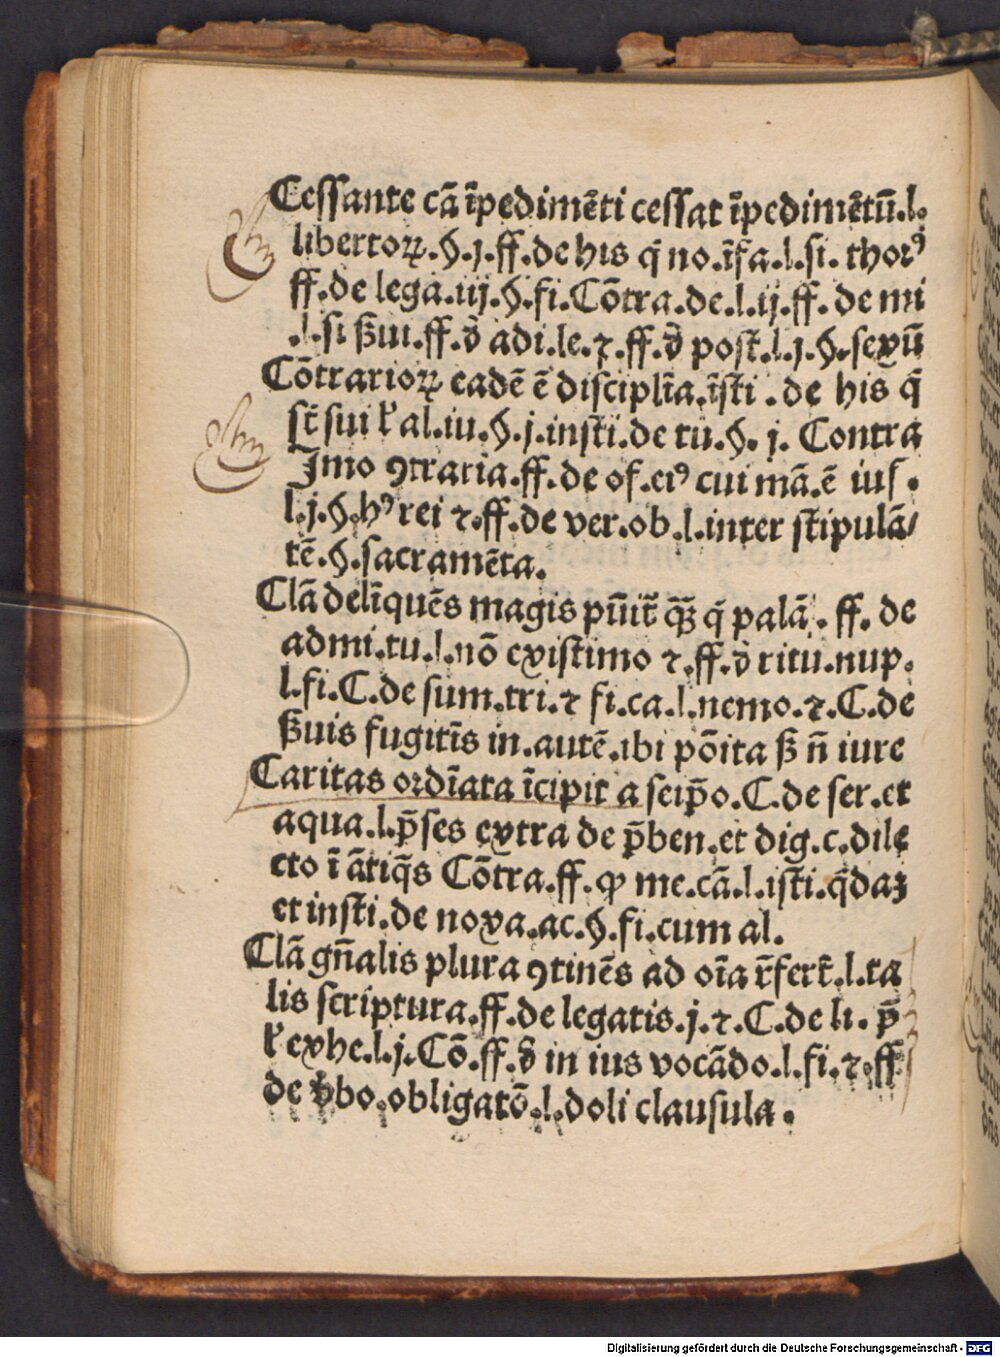 Cessante cā īpedimēti cessat īpedimētū.l.
libertoꝝ.§.j.ff.de his q̄ no.īfa.l.si. thorꝰ
ff.de lega.iij.§.fi.Cōtra.de.l.ij.ff.de mi
.l.si ẜui.ff.ꝺ̄ adi.le.⁊.ff.ꝺ̄ post̄.l.j.§.sexū
Cōtrarioꝝ eadē ē disciplīa.īsti.de his q̄
st̄ sui ł al.iu.§.j.insti.de tu.§. j. Contra
Jmo ꝯtraria.ff.de of.eiꝰ cui mā.ē ius.
l.j.§.hꝰ rei ⁊.ff.de ver.ob.l.inter stipulā/
tē.§.sacramēta.
Clā delīquēs magis pūit̄ qȝ̄ q̄ palā. ff. de
admi.tu.l.nō existimo ⁊.ff.ꝺ̄ ritu.nup.
l.fi.C.de sum.tri.⁊ fi.ca.l.nemo.⁊.C.de
ẜuis fugitīs in.autē.ibi pōita ẜ n̄ iure
Caritas ordīata īcipit a seip̄o.C.de ser.et
aqua.l.p̄ses extra de p̄ben.et dig.c.dile
cto ī ātiq̄s Cōtra.ff.ꝙ me.cā.l.isti.q̄daȝ
et insti.de noxa.ac.§.fi.cum al.
Clā gn̄alis plura ꝯtinēs ad oīa r̄fert̄.l.ta
lis scriptura.ff.de legatis.j.⁊.C.de li. p̄
ł exhe.l.j.Cō.ff.ꝺ̄ in ius vocādo.l.fi.⁊.ff
de v̄bo.obligatō.l.doli clausula.
Digitalisierung gefördert durch die Deutsche Forschungsgemeinschaft - DFG